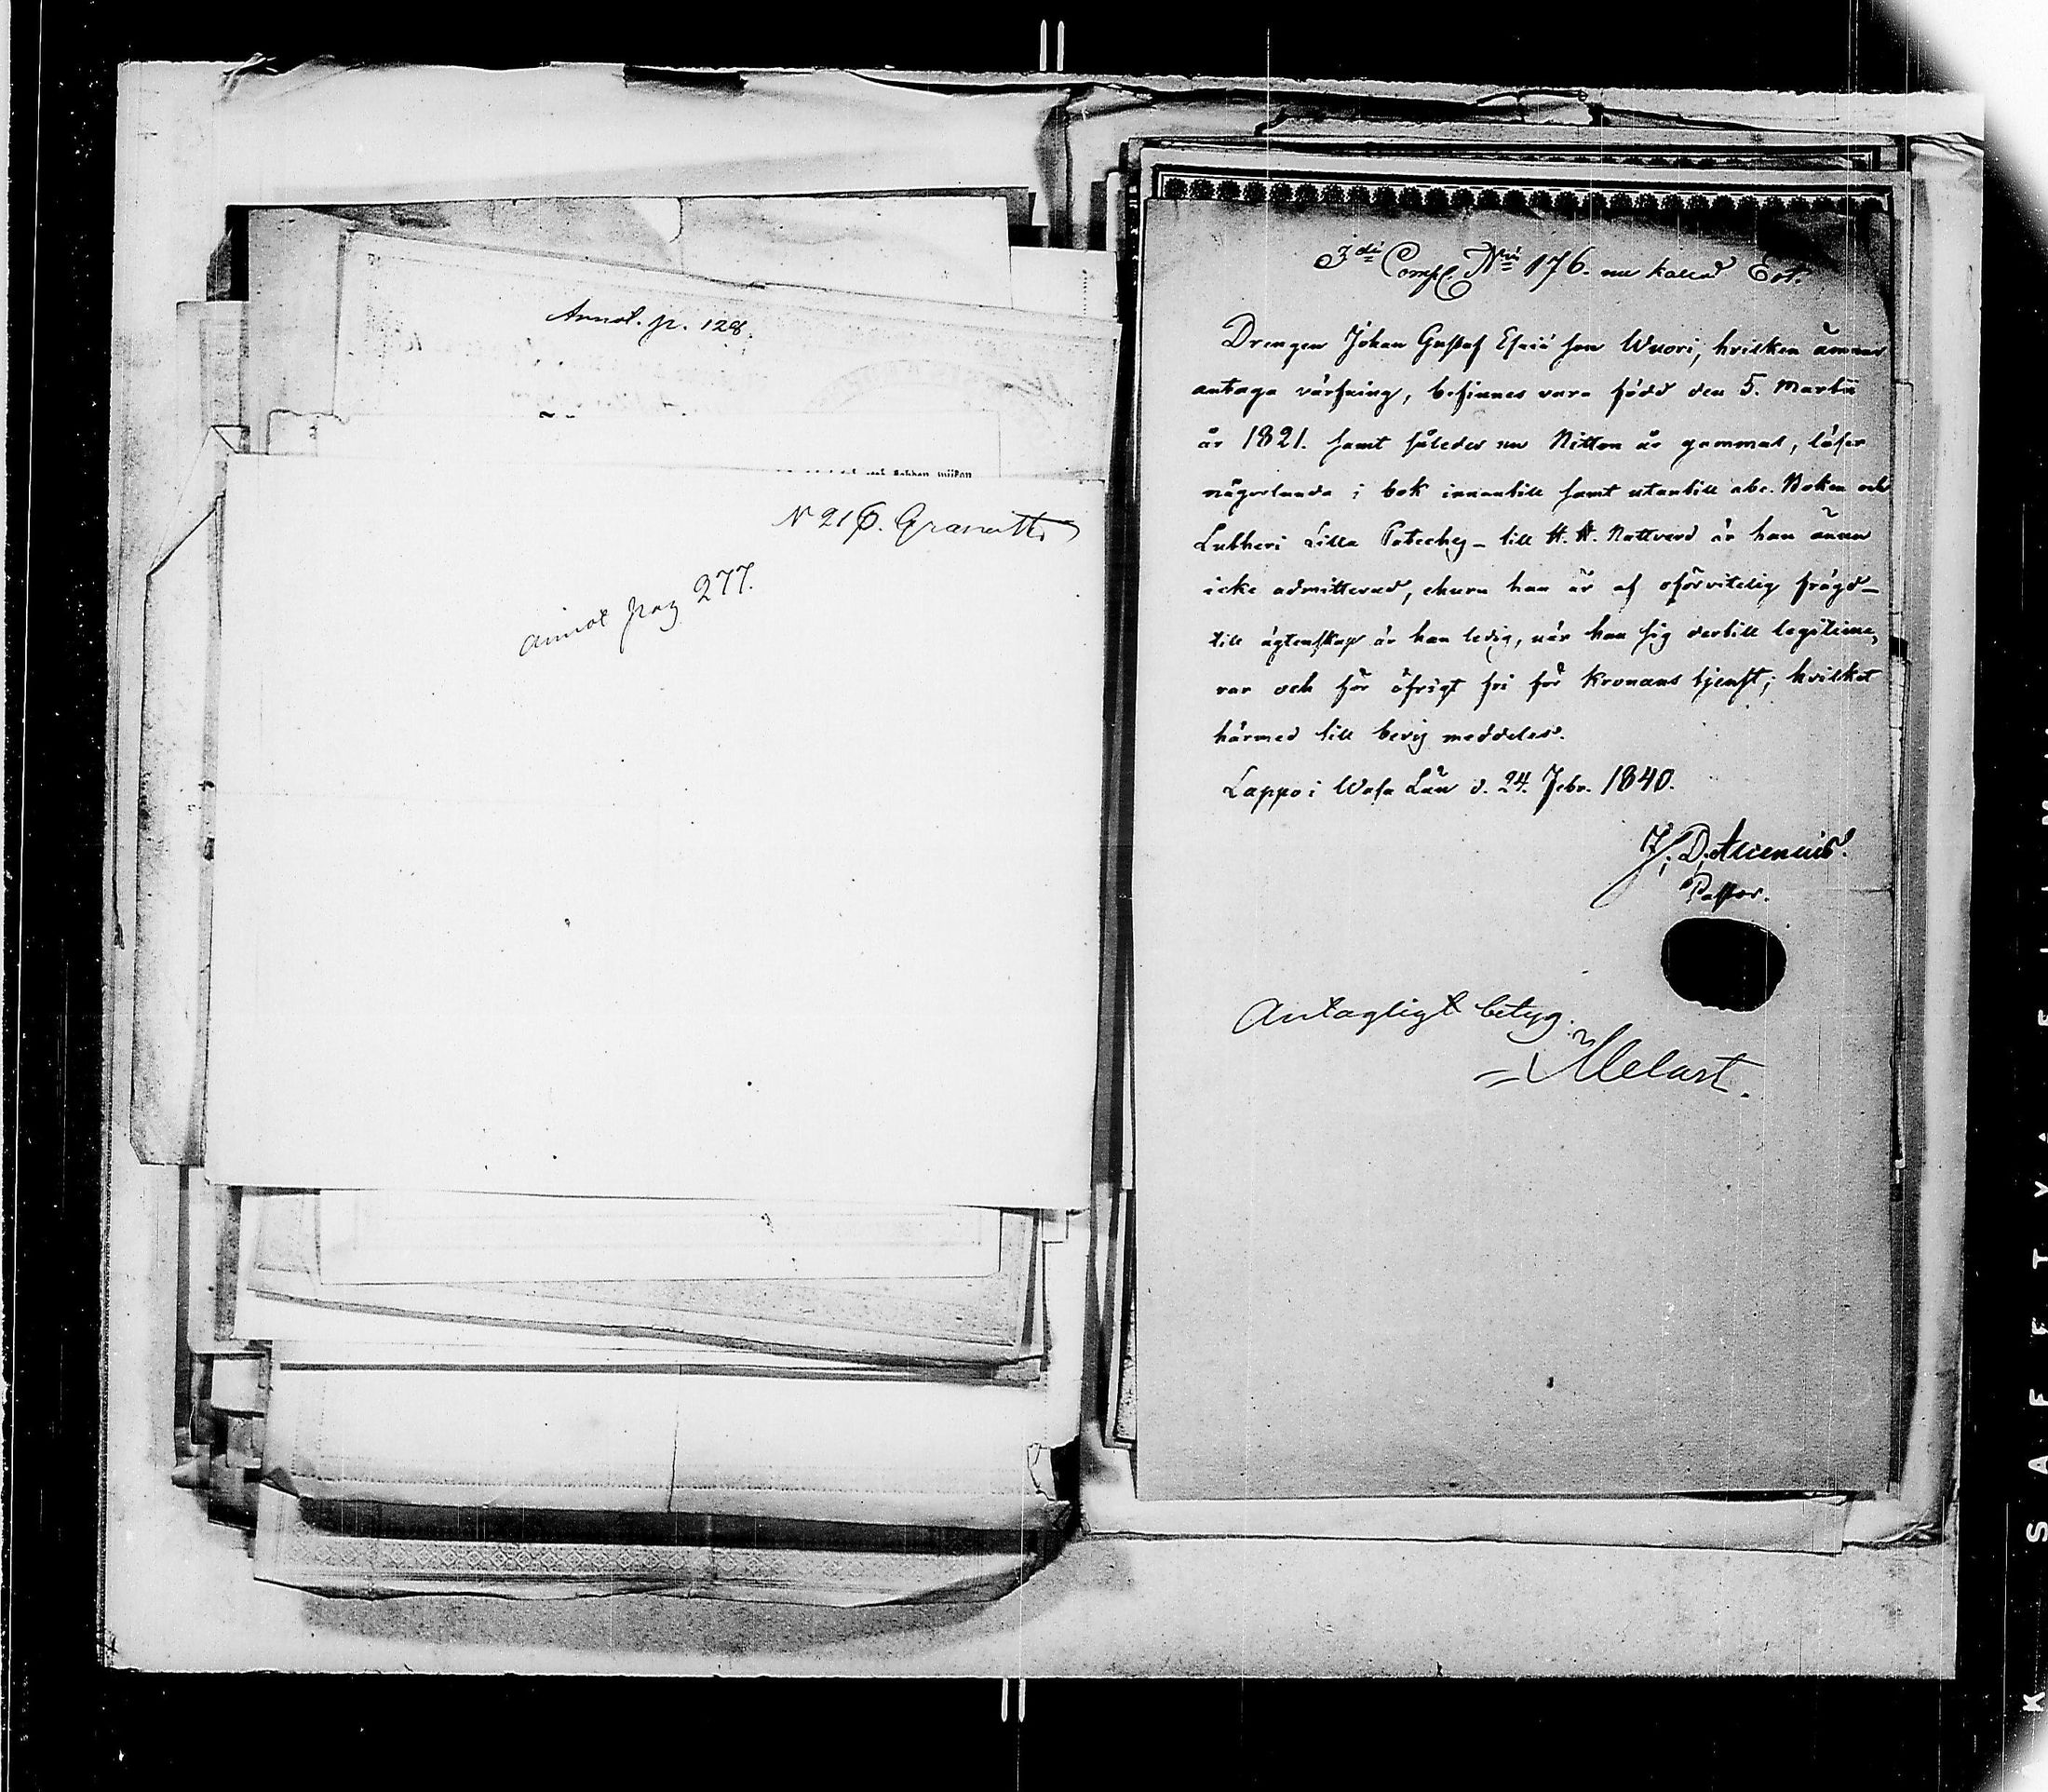 Annot. p. 128.
N 216. Granatti
annot pag 277.
3die Comp. No 176. nu kallad Ert.
Drengen Johan Gustaf Esaiæ son Wuori, hvilken ämnar
antaga värfning, befinnes vara född den 5. Martii
år 1821. samt således nu Nitton år gammal, läser
någorlunda i bok innantill samt utantill abc. Boken och
Lutheri Lilla Cateches – till H. H. Nattvard är han ännu
icke admitterad, ehuru han är af oförvitelig frägd –
till ägtenskap är han ledig, när han sig dertill legitime,
rar och för öfrigt fri för Kronans tjenst; hvilket
härmed till bevis meddelas.
Lappo i Wasa Län d. 24. Febr. 1840.
J. D. Alcenius.
Pastor.
Antagligt betyg.
Melart.
SAFETY FILM
K